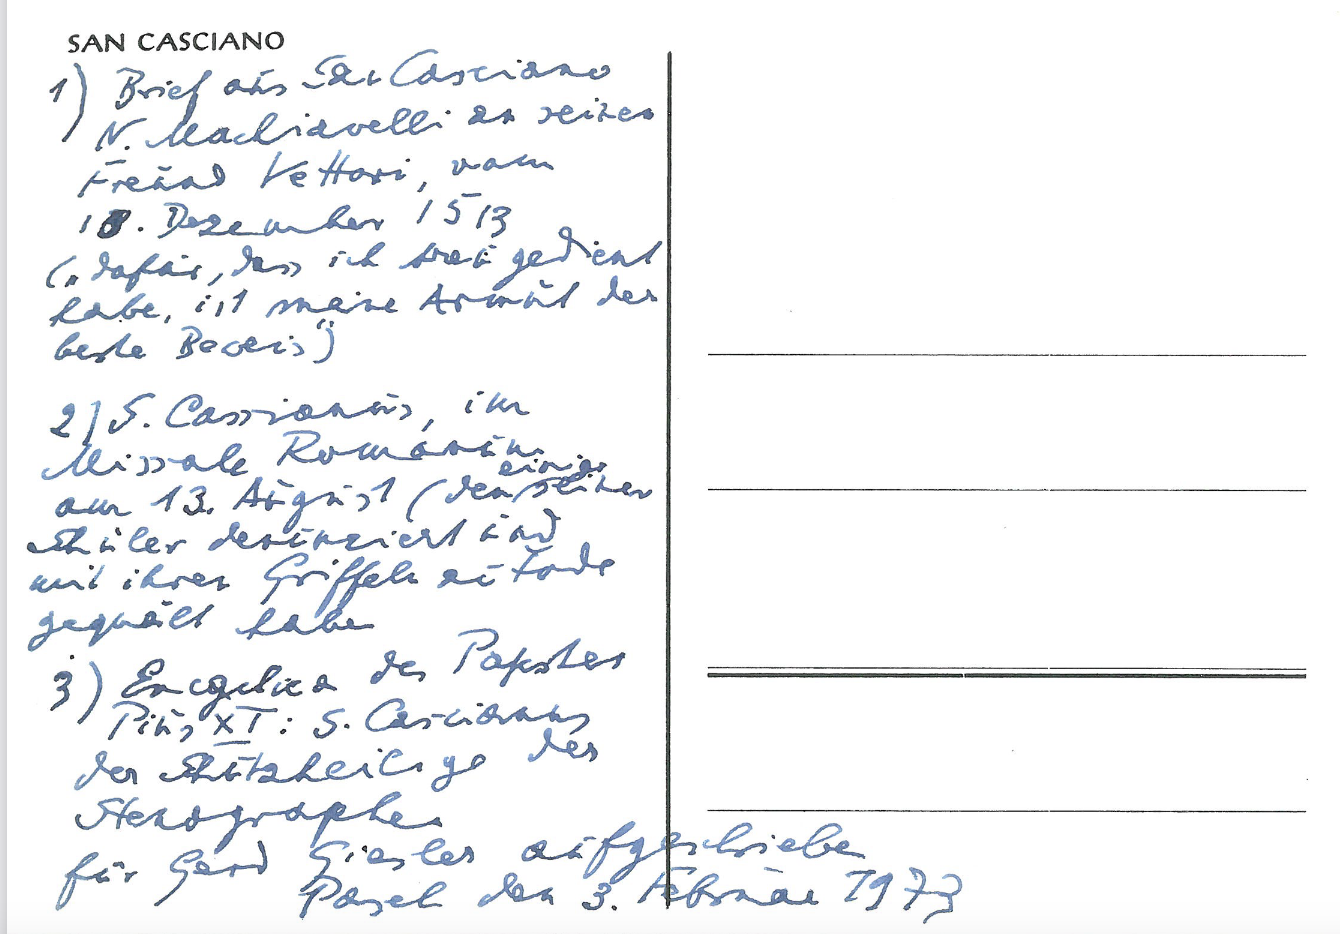 SAN CASCIANO
1) Brief aus San Casciano
N. Machiavelli an seinen
Freund Vettori, vom
10. Dezember 1513
(„dafür, dass ich treu gedient
habe, ist meine Armut der
beste Beweis“)
2) S. Cassianus, im
Missale Romanum
am 13. August (den einige seiner
Schüler denunziert und
mit ihren Griffeln zu Tode
gequält haben
3) Encyclica des Papstes
Pius XI: S. Cascianus
der Schutzheilige der
Stenographen
für Gerd Giesler aufgeschrieben
Pasel den 3. Februar 1973